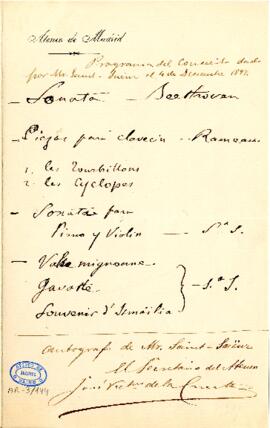 Ateneo de Madrid
Programa del Concierto dado
por Mr. Saint-Saëns el 4 de Diciembre 1897.
— Sonata — Beethoven
— Pièces pour clavecin — Rameau
1. les Tourbillons
2. les Cyclopes
— Sonate pour
Piano y Violin — S.ᵗ S.
— Valse mignonne
Gavotte
Souvenir d'Ismaïlia
S.ᵗ S.
Autografo de Mr. Saint-Saëns
El Secretario del Ateneo
José Victor de la
ATENEO
MADRID
AR-3/144